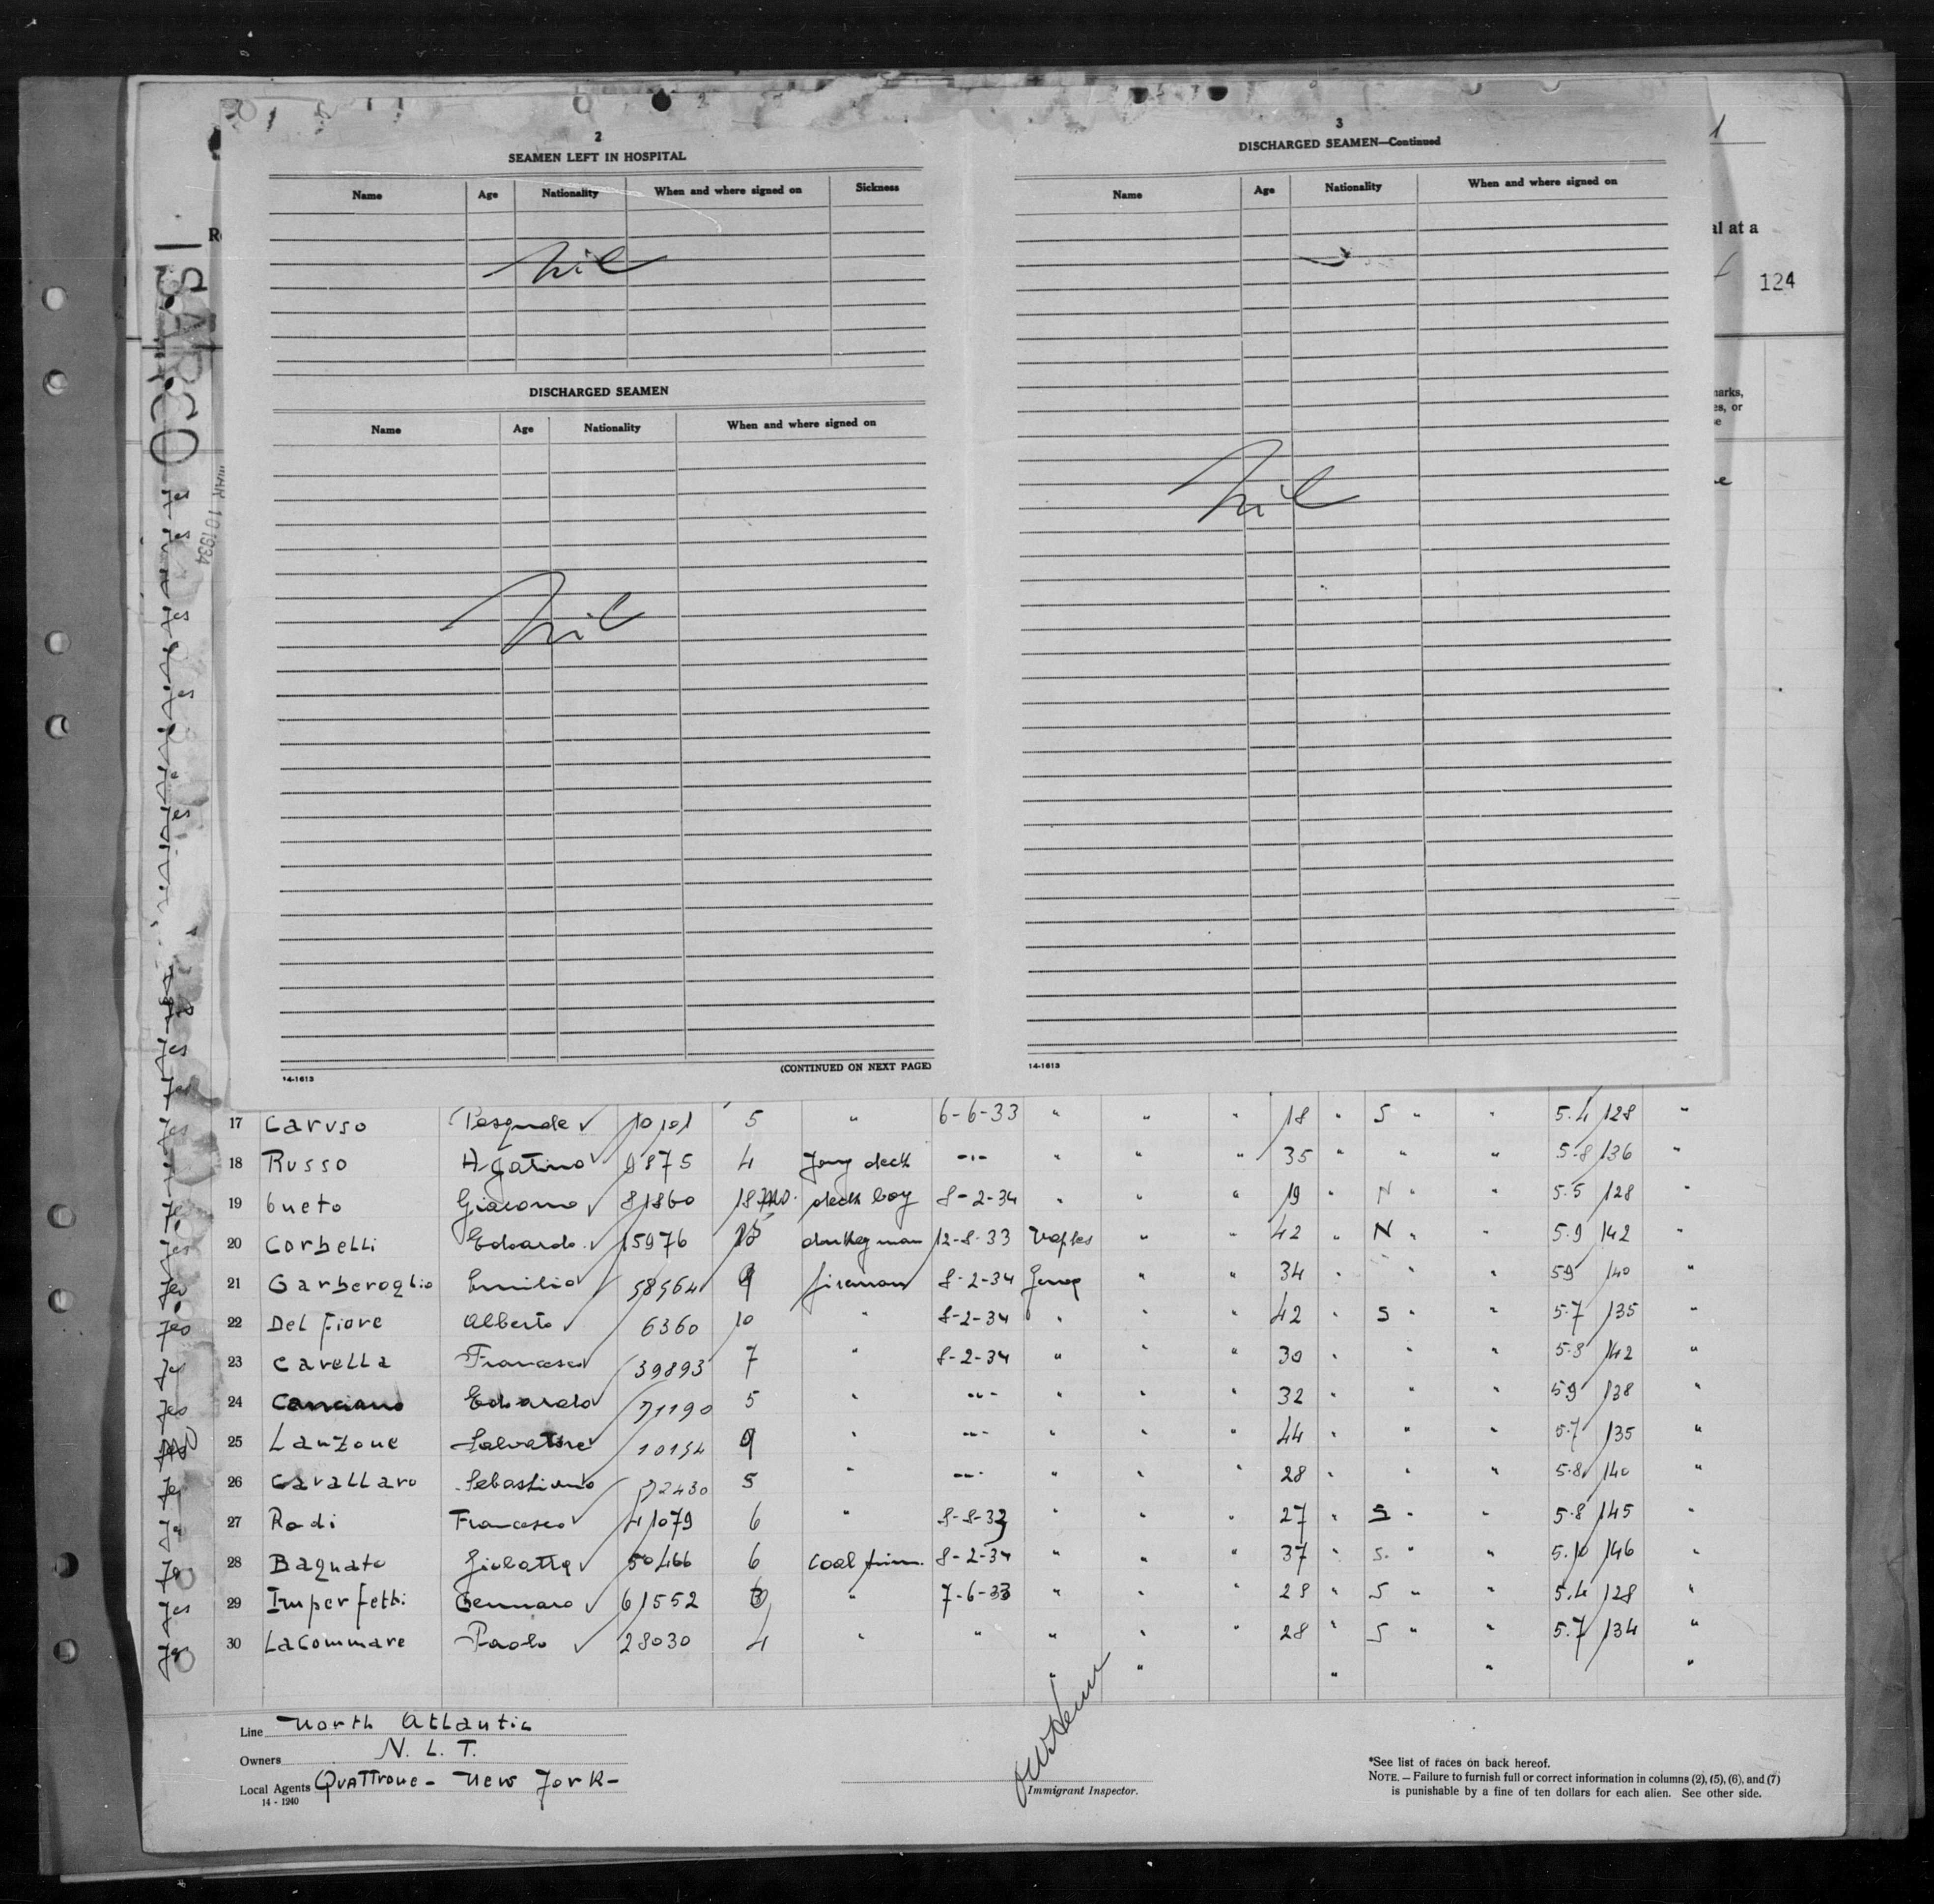 2
SEAMEN LEFT IN HOSPITAL
Name Age Nationality When and where signed on Sickness
Nil
DISCHARGED SEAMEN
Name Age Nationality When and where signed on
Nil
(CONTINUED ON NEXT PAGE)
14-1613
3
DISCHARGED SEAMEN—Continued
Name Age Nationality When and where signed on
Nil
14-1613
al at a
124
marks,
es, or
MAR 10 1934
17 Caruso Pasquale 10101 5 " 6-6-33 " " " 18 " S " " 5.4 128 "
18 Russo Agatino 9875 4 Jong deck -"- " " " 35 " " " 5.8 136 "
19 Cueto Giacomo 81860 18 mo. deck boy 8-2-34 " " " 19 " N " 5.5 128 "
20 Corbelli Edoardo 15976 15 donkey man 12-8-33 Naples " " 42 " N " " 5.9 142 "
21 Garberoglio Emilio 58564 9 fireman 8-2-34 Genoa " " 34 " " " 59 140 "
22 Del Fiore Alberto 6360 10 " 8-2-34 " " " 42 " S " " 5.7 135 "
23 Carella Francesco 39893 7 " 8-2-34 " " " 30 " " " 5.8 142 "
24 Canciano Edoardo 71190 5 " -"- " " " 32 " " 59 138 "
25 Lanzone Salvatore 10154 9 -"- " " " 44 " " " 5.7 135 "
26 Cavallaro Sebastiano 72430 5 " -"- " " " 28 " " " 5.8 140 "
27 Rodi Francesco 41079 6 " 8-8-33 " " " 27 " S " " 5.8 145 "
28 Bagnato Giobatta 50466 6 Coal trim. 8-2-34 " " " 37 " S " " 5.10 146 "
29 Imperfetti Gennaro 61552 3 " 7-6-33 " " " 28 " S " " 5.4 128 "
30 LaCommare Paolo 28030 4 " " " " " 28 " S " " 5.7 134 "
" " " " "
Line North Atlantic
Owners N. L. T.
Local Agents Quattrone - New York -
14 - 1240
Immigrant Inspector.
*See list of races on back hereof.
NOTE. — Failure to furnish full or correct information in columns (2), (5), (6), and (7)
is punishable by a fine of ten dollars for each alien. See other side.